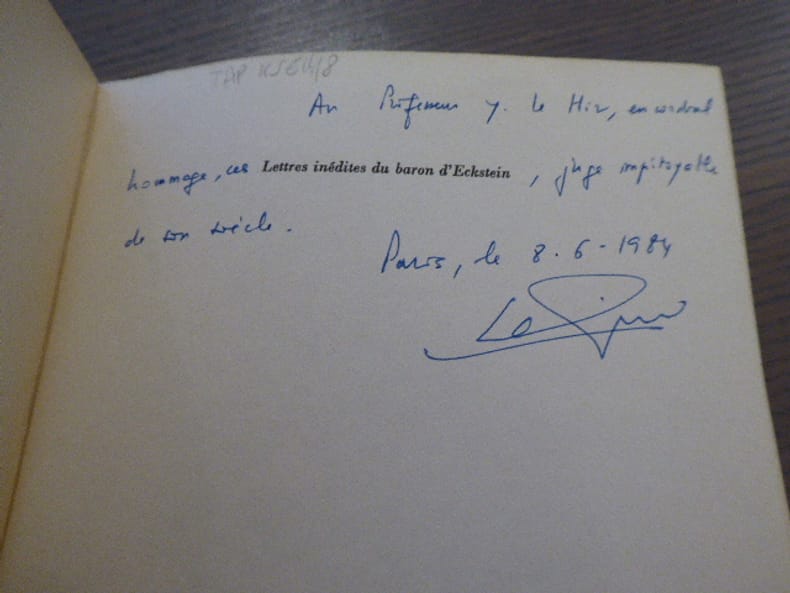 TAP
Au Professeur Y. Le Hir, en cordial
hommage, ces Lettres inédites du baron d'Eckstein, juge impitoyable
de son siècle.
Paris, le 8-6-1984
Le